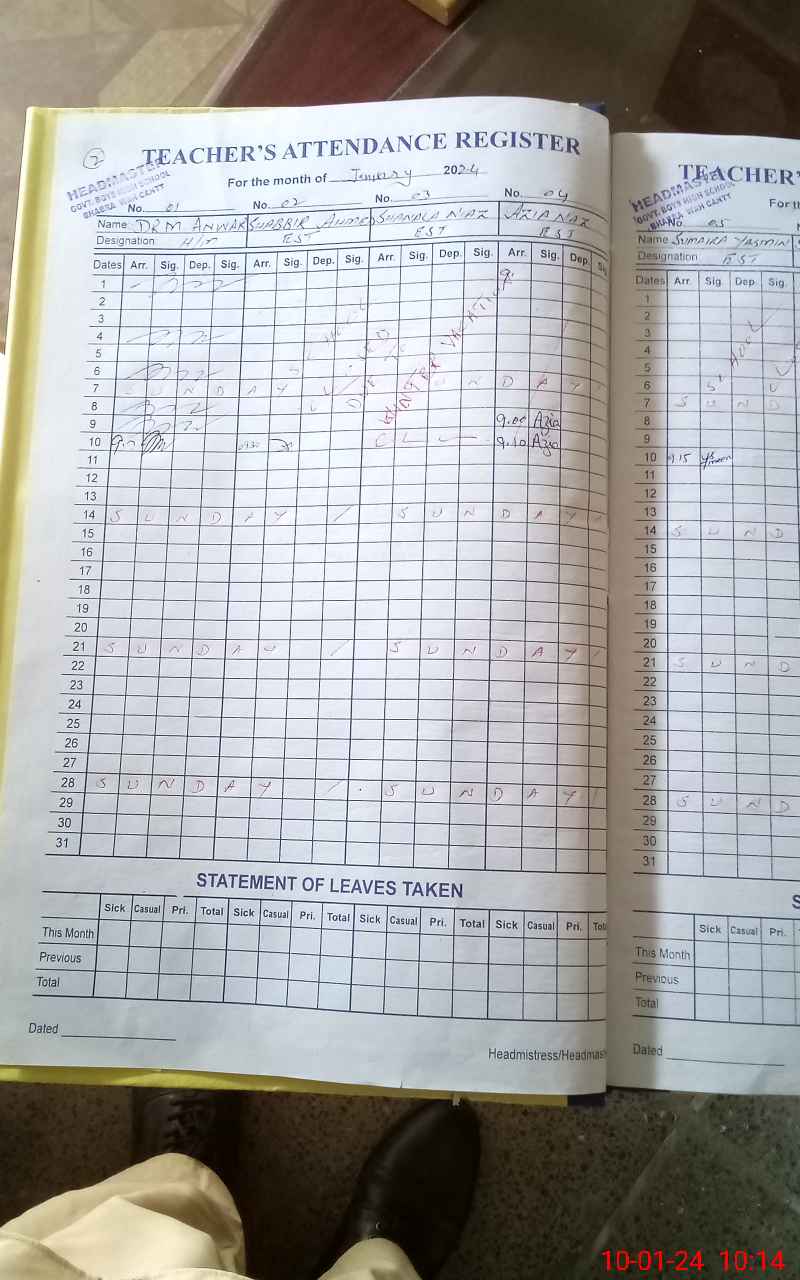 7
TEACHER'S ATTENDANCE REGISTER
HEADMASTER
GOVT. BOYS HIGH SCHOOL
BHABRA WAH CANTT
For the month of January 2024
No. 01 No. 02 No. 03 No. 04
Name DR M ANWAR SHABBIR AHMED SHAHALA NIAZ AZIA NAZ
Designation H/T EST EST EST
Dates Arr. Sig. Dep. Sig. Arr. Sig. Dep. Sig. Arr. Sig. Dep. Sig. Arr. Sig. Dep. Sig.
1
2
3
4
5
6
7 SUNDAY SUNDAY
WINTER VACATION
8
9 9.00 Azia
10 CL 9.10 Azia
11
12
13
14 SUNDAY / SUNDAY /
15
16
17
18
19
20
21 SUNDAY / SUNDAY /
22
23
24
25
26
27
28 SUNDAY / SUNDAY /
29
30
31
STATEMENT OF LEAVES TAKEN
Sick Casual Pri. Total Sick Casual Pri. Total Sick Casual Pri. Total Sick Casual Pri. Total
This Month
Previous
Total
Dated
Headmistress/Headmas
TEACHER'
HEADMASTER
GOVT. BOYS HIGH SCHOOL
BHABRA WAH CANTT
For th
No. 05
Name SUMAIRA YASMIN
Designation EST
Dates Arr. Sig. Dep. Sig.
1
2
3
4
5
6
7 SUND
8
9
10 9.15
11
12
13
14 SUND
15
16
17
18
19
20
21 SUND
22
23
24
25
26
27
28 SUND
29
30
31
S
Sick Casual Pri.
This Month
Previous
Total
Dated
10-01-24 10:14